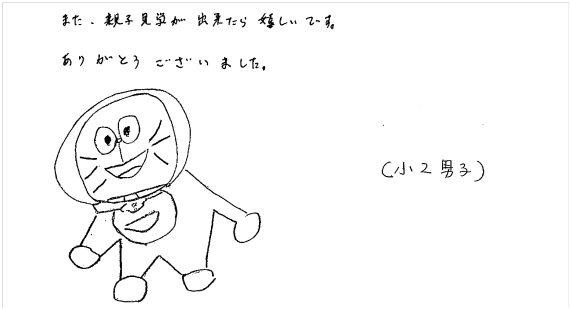 また、親子見学が出来たら嬉しいです。
ありがとうございました。
(小2男子)